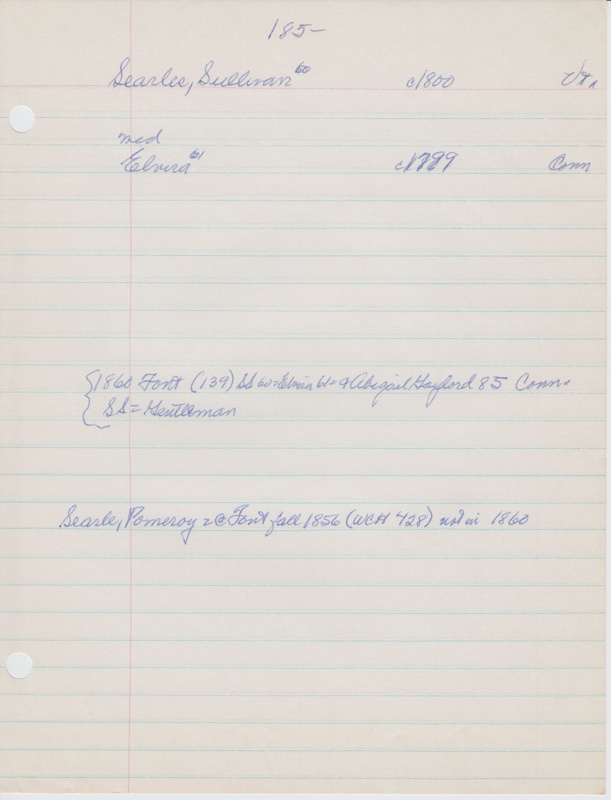 185-
Searle, Sullivan 60 c1800 Vt.
med
Elvira 61 c1799 Conn
{1860 Font (139) SS 60 = Elvira 61 = & Abigail Gaylord 85 Conn.
SS = Gentleman
Searle, Pomeroy = @ Font fall 1856 (WCH 428) not in 1860